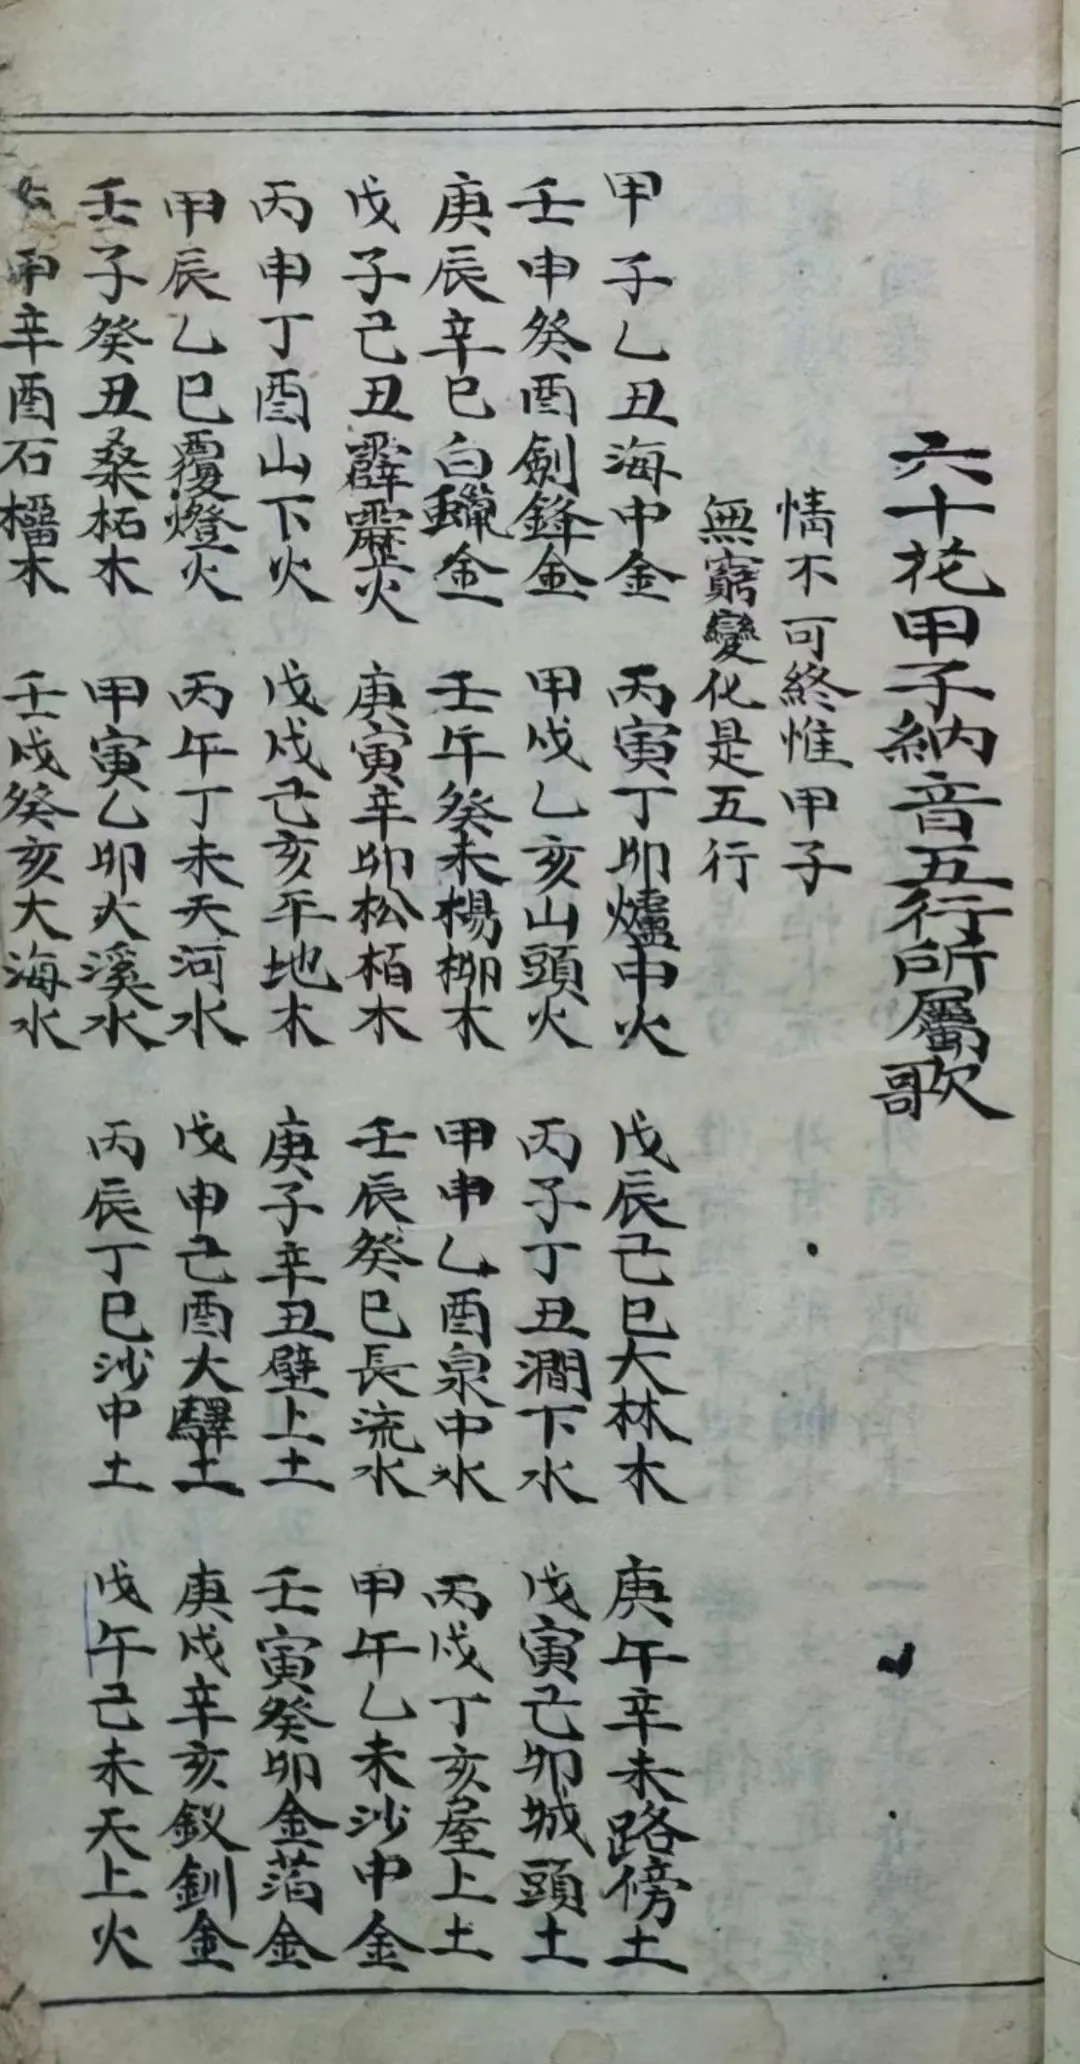 六十花甲子納音五行所屬歌
情不可終惟甲子
無窮變化是五行
甲子乙丑海中金 丙寅丁卯爐中火 戊辰己巳大林木 庚午辛未路傍土
壬申癸酉劍鋒金 甲戌乙亥山頭火 丙子丁丑澗下水 戊寅己卯城頭土
庚辰辛巳白鑞金 壬午癸未楊柳木 甲申乙酉泉中水 丙戌丁亥屋上土
戊子己丑霹靂火 庚寅辛卯松柏木 壬辰癸巳長流水 甲午乙未沙中金
丙申丁酉山下火 戊戌己亥平地木 庚子辛丑壁上土 壬寅癸卯金箔金
甲辰乙巳覆燈火 丙午丁未天河水 戊申己酉大驛土 庚戌辛亥釵釧金
壬子癸丑桑柘木 甲寅乙卯大溪水 丙辰丁巳沙中土 戊午己未天上火
申辛酉石榴木 壬戌癸亥大海水